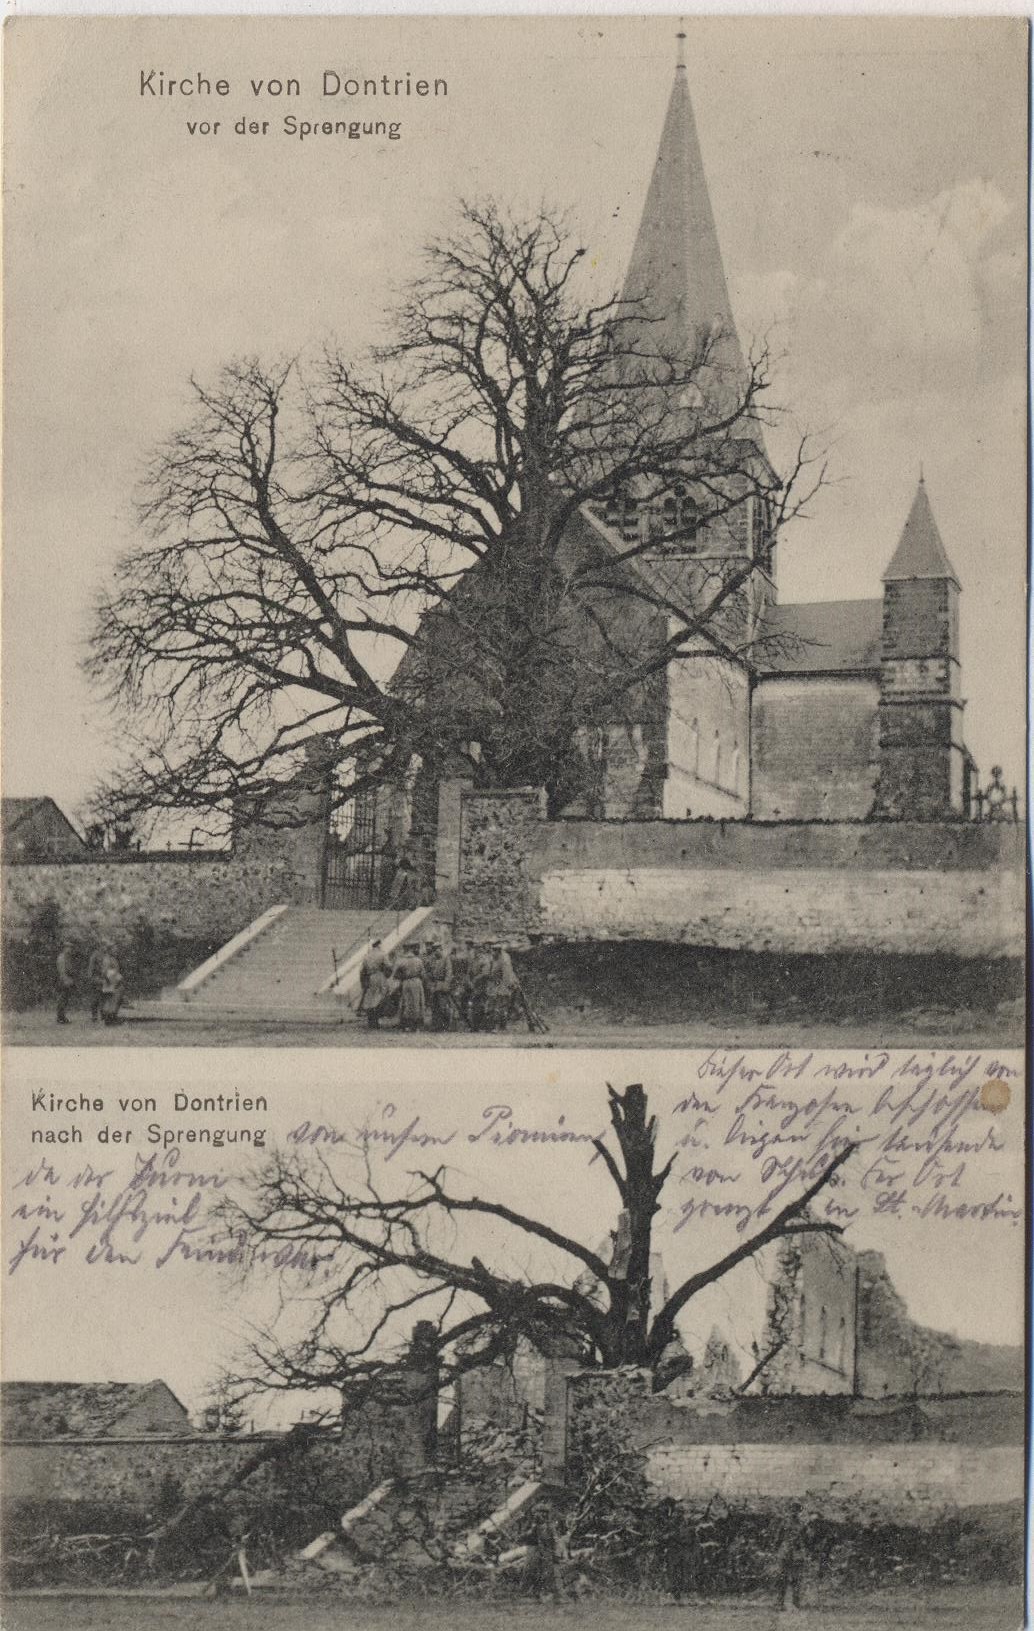 Kirche von Dontrien
vor der Sprengung
Kirche von Dontrien
nach der Sprengung von unsern Pionieren,
da der Turm
ein Hilfsziel
für den Feind war.
Dieser Ort wird täglich von
den Franzosen beschossen
u. liegen hier tausende
von Schuß. Der Ort
grenzt an St. Martin.